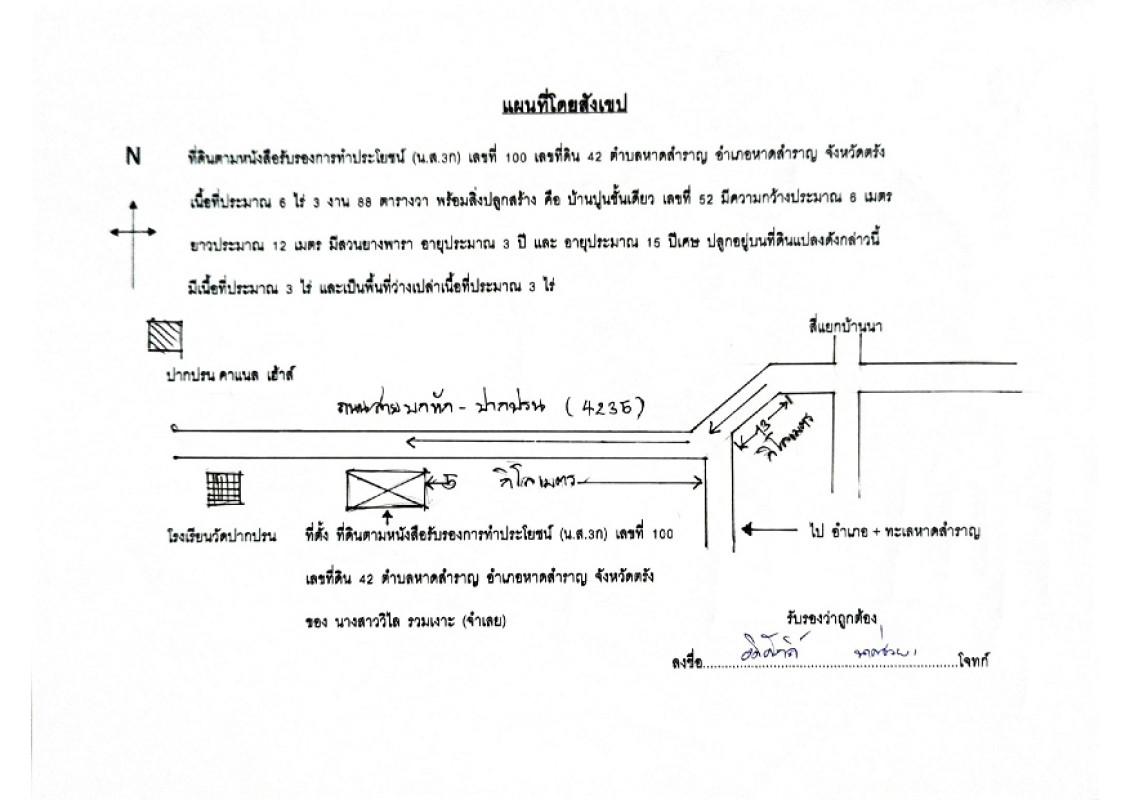 แผนที่โดยสังเขป
N
ที่ดินตามหนังสือรับรองการทำประโยชน์ (น.ส.3ก) เลขที่ 100 เลขที่ดิน 42 ตำบลหาดสำราญ อำเภอหาดสำราญ จังหวัดตรัง
เนื้อที่ประมาณ 6 ไร่ 3 งาน 88 ตารางวา พร้อมสิ่งปลูกสร้าง คือ บ้านปูนชั้นเดียว เลขที่ 52 มีความกว้างประมาณ 6 เมตร
ยาวประมาณ 12 เมตร มีสวนยางพารา อายุประมาณ 3 ปี และ อายุประมาณ 15 ปีเศษ ปลูกอยู่บนที่ดินแปลงดังกล่าวนี้
มีเนื้อที่ประมาณ 3 ไร่ และเป็นพื้นที่ว่างเปล่าเนื้อที่ประมาณ 3 ไร่
สี่แยกบ้านนา
ปากปรน คาแนล เฮ้าส์
ถนนสาย - ปากปรน (4235)
13
กิโลเมตร
5 กิโลเมตร
โรงเรียนวัดปากปรน
ที่ตั้ง ที่ดินตามหนังสือรับรองการทำประโยชน์ (น.ส.3ก) เลขที่ 100
ไป อำเภอ + ทะเลหาดสำราญ
เลขที่ดิน 42 ตำบลหาดสำราญ อำเภอหาดสำราญ จังหวัดตรัง
ของ นางสาววิไล รวมเงาะ (จำเลย)
รับรองว่าถูกต้อง
ลงชื่อ....................โจทก์